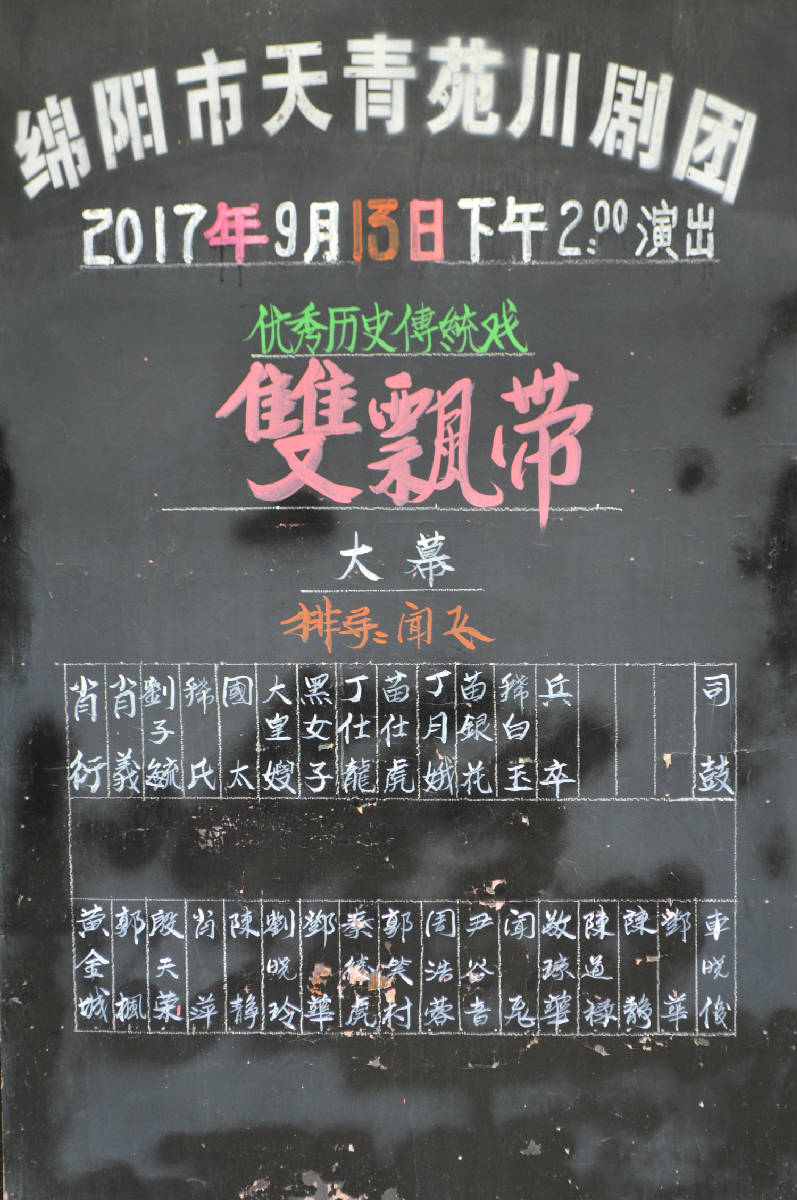 绵阳市天青苑川剧团
2017年9月13日下午2:00演出
优秀历史傳統戏
雙飄带
大幕
排导:闻飞
肖衍
肖義
劉子毓
稀氏
國太
大皇嫂
黑女子
丁仕龍
苗仕虎
丁月娥
苗銀花
稀白玉
兵卒
司鼓
黄金城
郭楓
殷天荣
肖萍
陳静
劉晓玲
鄧華
泰德虎
郭笑村
周浩蓉
尹谷音
闻飞
敬琼華
陳道禄
陳静
鄧華
車晓俊